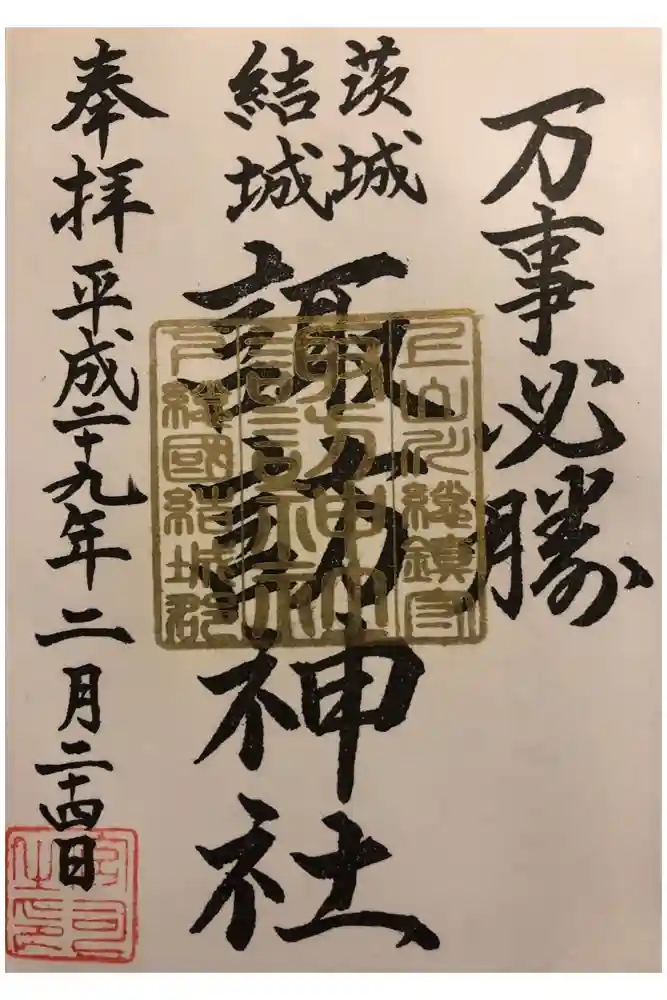 万事必勝
茨城
結城
諏訪神社
奉拝
平成二十九年二月二十四日
上山川総鎮守
諏訪神社
下総國結城郡
宮司之印